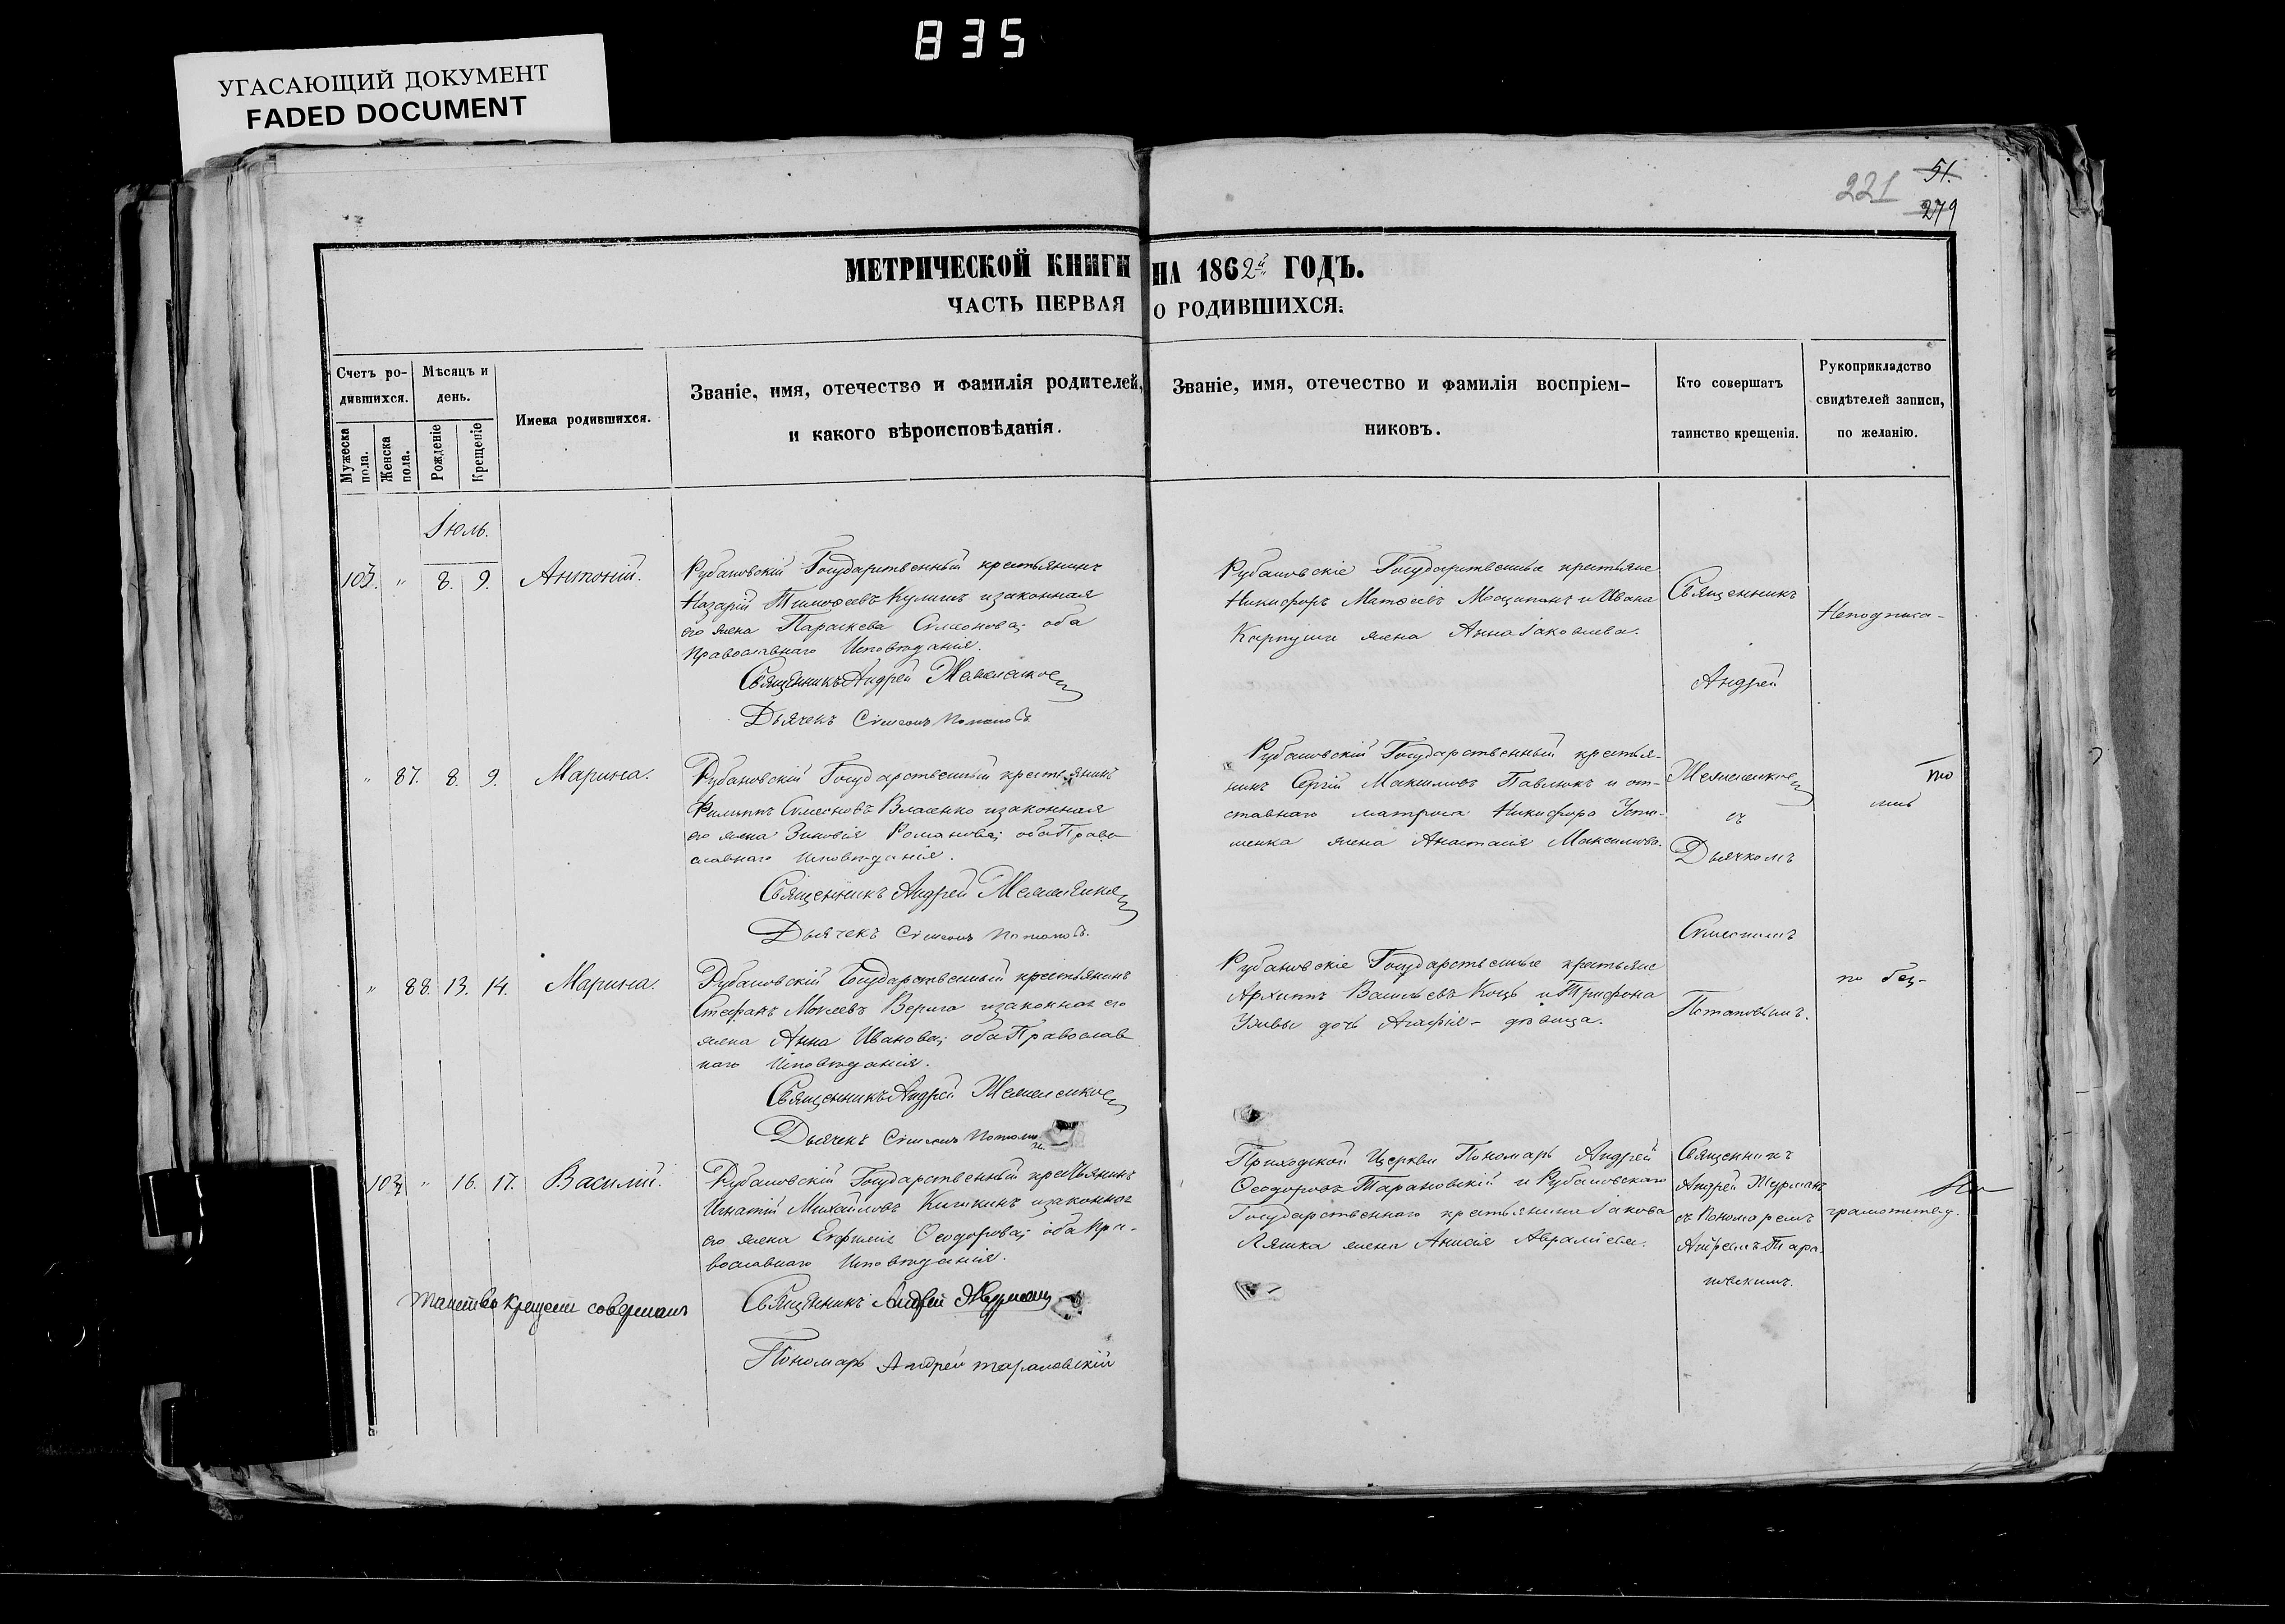 835
УГАСАЮЩИЙ ДОКУМЕНТ
FADED DOCUMENT
51.
221
279
МЕТРИЧЕСКОЙ КНИГИ НА 1862й ГОДЪ.
ЧАСТЬ ПЕРВАЯ О РОДИВШИХСЯ.
Счетъ ро-
дившихся.
Мужеска пола.
Женска пола.
Мѣсяцъ и
день.
Рожденіе
Крещеніе
Имена родившихся.
Званіе, имя, отечество и фамилія родителей,
и какого вѣроисповѣданія.
Званіе, имя, отечество и фамилія воспріем-
никовъ.
Кто совершатъ
таинство крещенія.
Рукоприкладство
свидѣтелей записи,
по желанію.
Іюль.
103. " 8. 9. Антоній.
Рубановскій Государственный крестьянинъ
Назарій Тимофеевъ Кулишъ изаконная
его жена Параскева Симеонова; оба
православнаго Исповѣданія.
Священникъ Андрей
Дьячекъ Симеонъ Потаповъ.
Рубановскіе Государственные крестьяне
Никифоръ Матфеевъ и Ивана
жена Анна Іаковлева.
" 87. 8. 9. Марина.
Рубановскій Государственный крестьянинъ
Филиппъ Симеоновъ Власенко изаконная
его жена Зиновія Романова; оба Право-
славнаго Исповѣданія.
Священникъ Андрей
Дьячекъ Симеонъ Потаповъ.
Рубановскій Государственный крестья-
нинъ Сергій Максимовъ Павлюкъ и от-
ставнаго матроса Никифора Усти-
менка жена Анастасія Максимова.
" 88. 13. 14. Марина.
Рубановскій Государственный крестьянинъ
Стефанъ Верига изаконная его
жена Анна Иванова; оба Православ
наго Исповѣданія.
Священникъ Андрей
Дьячекъ Симеонъ
Рубановскіе Государственные крестьяне
Архиппъ Васильевъ Коць и Трифона
дочь Агафія - дѣвица.
Священникъ
Андрей
съ
Дьячкомъ
Симеономъ
Потаповымъ.
" 16. 17. Василій.
Рубановскій Государственный крестьянинъ
Игнатій Михайловъ Кишкинъ изаконная
его жена Евфимія Ѳеодорова; оба Пра-
вославнаго Исповѣданія.
таинство крещенія совершалъ Священникъ Андрей
Пономарь Андрей Тарановскій
Приходской Церкви Пономарь Андрей
Ѳеодоровъ Тарановскій и Рубановскаго
Государственнаго крестьянина Іакова
Ляшка жена Анисія Авраміева.
Священникъ
Андрей
съ Пономаремъ
Андреемъ Тара-
новскимъ.
Неподписа-
ли
по без-
грамотству.